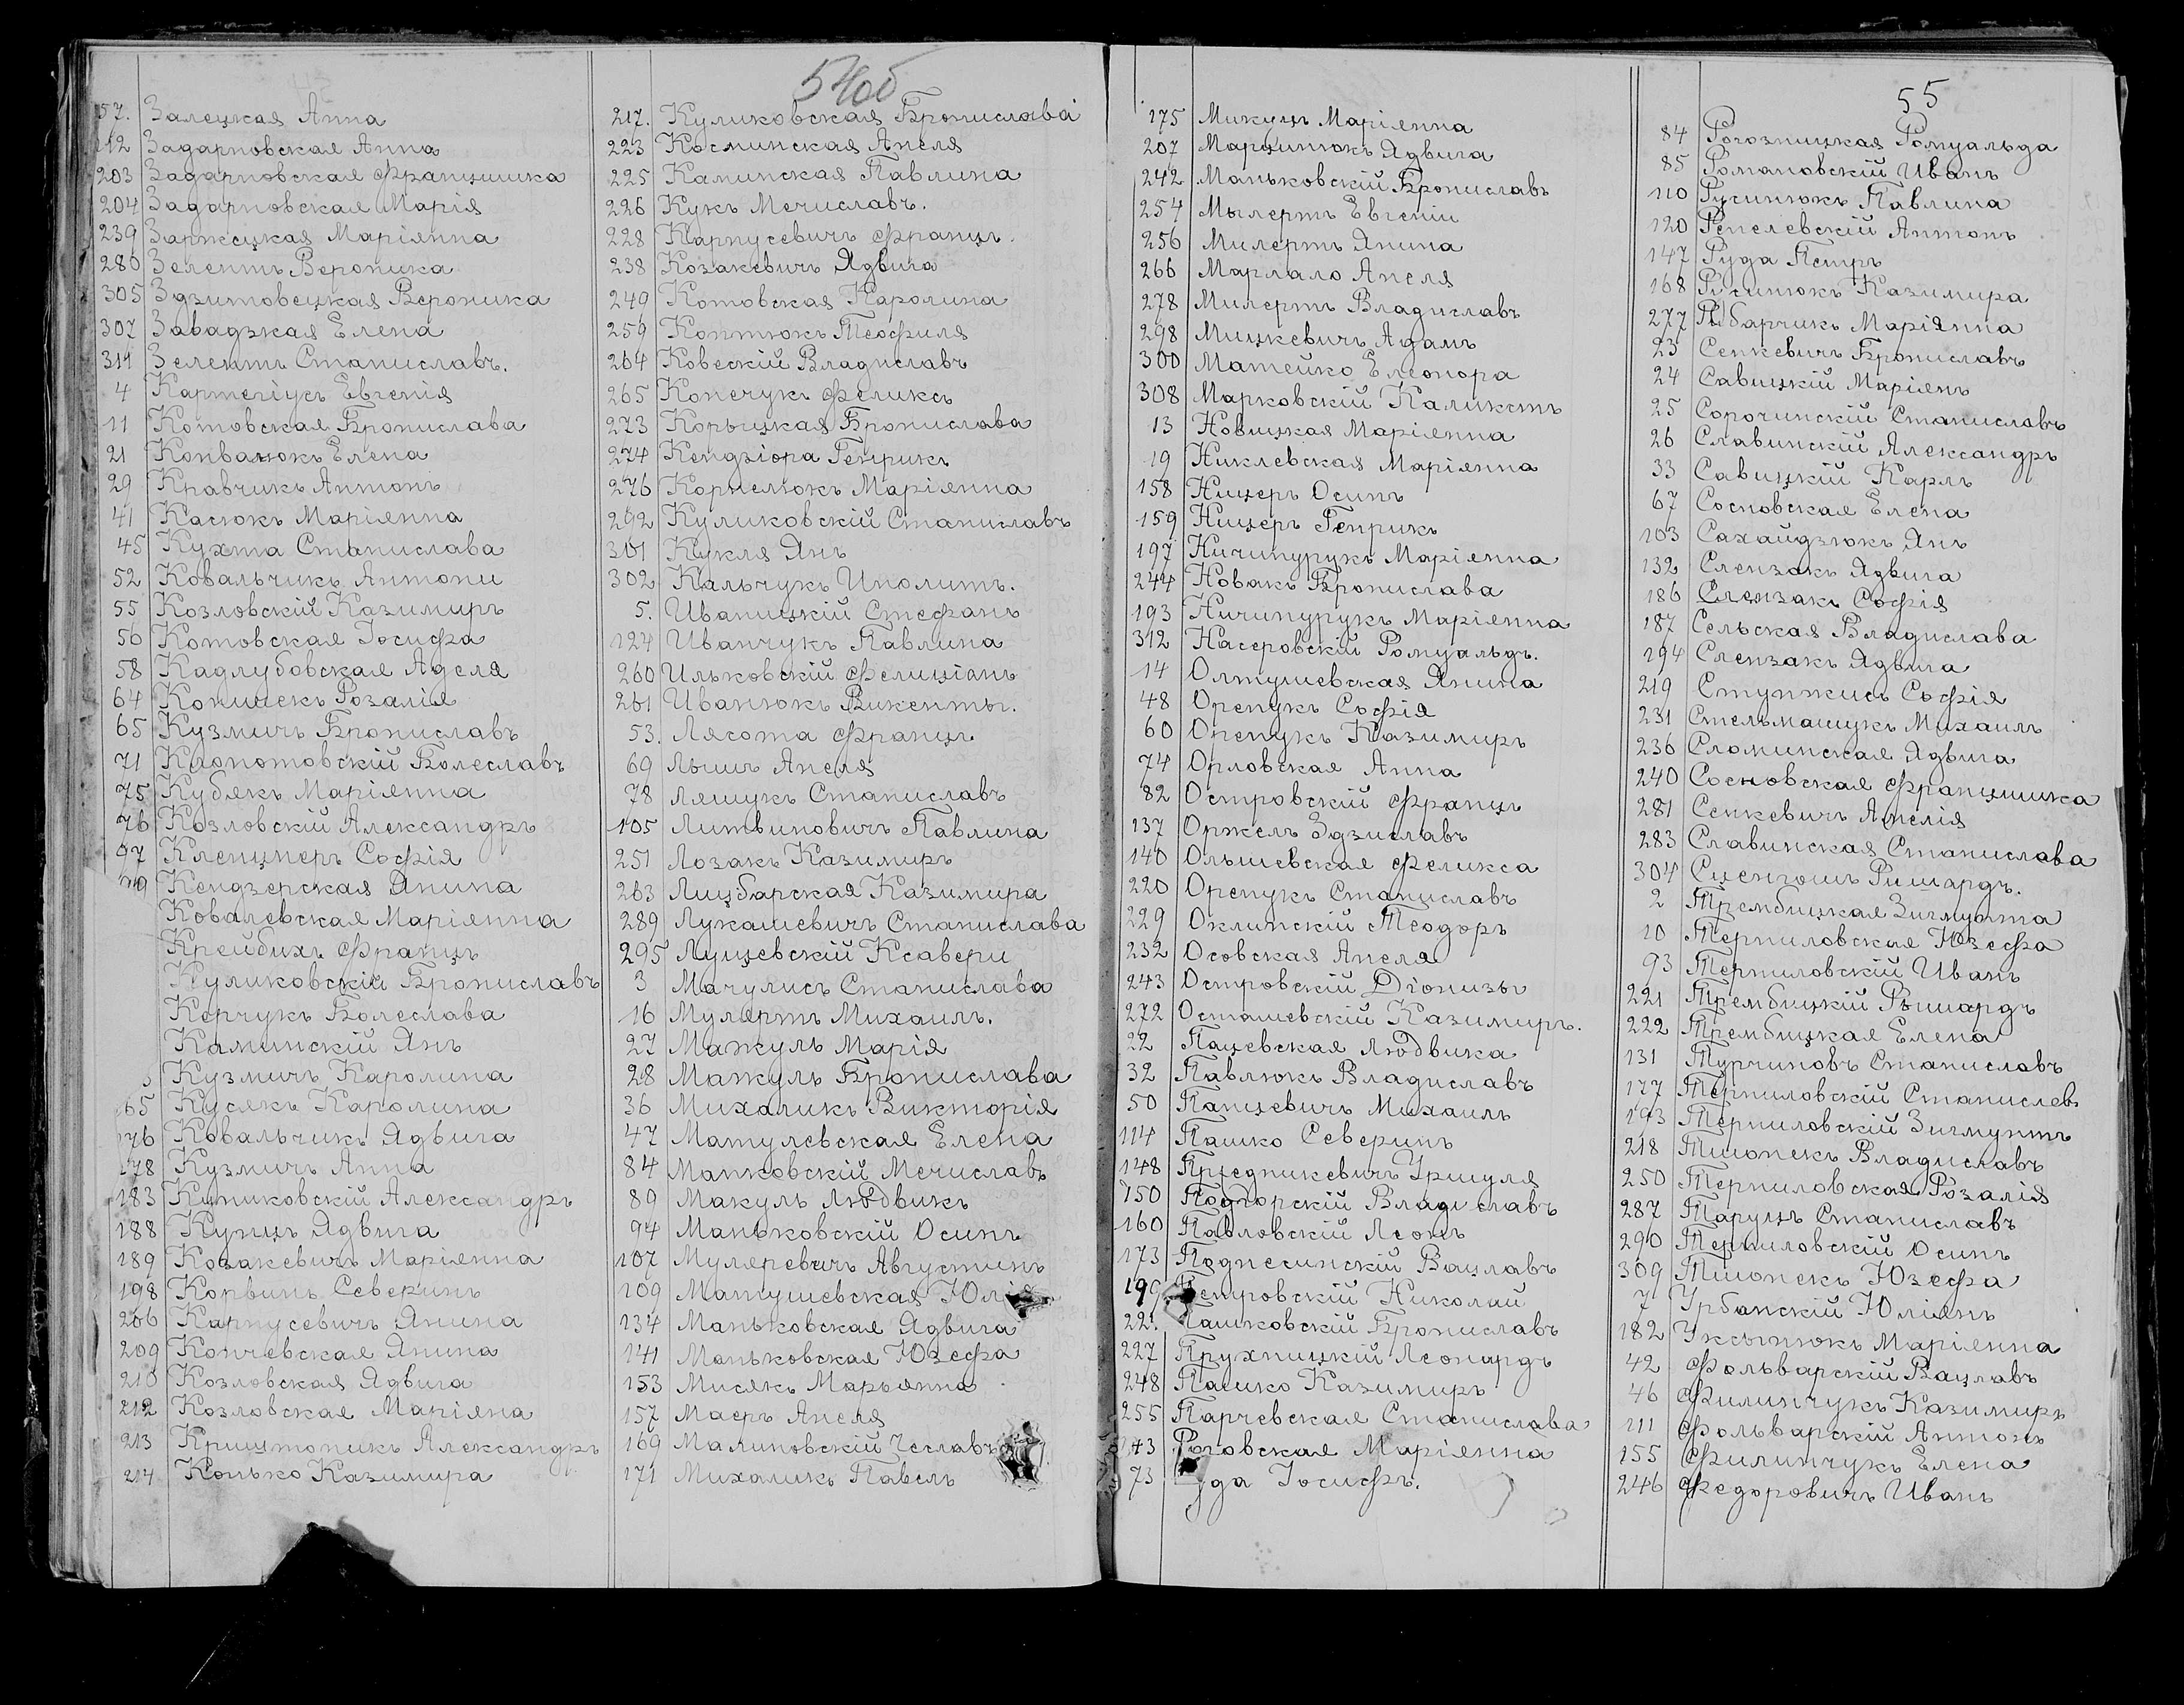 54об
57. Залецкая Анна
112 Задарновская Анна
203 Задарновская Францишка
204 Задарновская Марія
239 Заржецкая Маріянна
280 Зелентъ Вероника
305 Здзитовецкая Вероника
307 Завадзкая Елена
311 Зелентъ Станиславъ.
4 Картегіусъ Евгенія
11 Котовская Бронислава
21 Конванюкъ Елена
29 Кравчикъ Антонъ
41 Касюкъ Маріянна
45 Кухта Станислава
52 Ковальчикъ Антони
55 Козловскій Казимиръ
56 Котовская Іосифа
58 Кадлубовская Аделя
64 Конишекъ Розалія
65 Кузмичъ Брониславъ
71 Клопотовскій Болеславъ
75 Кубякъ Маріянна
76 Козловскій Александръ
97 Кленцнеръ Софія
Кендзерская Янина
Ковалевская Маріянна
Крейбихъ Францъ
Куликовскій Брониславъ
Керчукъ Болеслава
Каминскій Янъ
Кузмичъ Каролина
65 Кусякъ Каролина
176 Ковальчикъ Ядвига
178 Кузмичъ Анна
183 Куликовскій Александръ
188 Кунцъ Ядвига
189 Козакевичъ Маріянна
198 Корвинъ Северинъ
206 Карпусевичъ Янина
209 Кончевская Янина
210 Козловская Ядвига
212 Козловская Маріяна
213 Криштопикъ Александръ
214 Конько Казимира
217. Куликовская Брониславаі
223 Косминская Анеля
225 Каминская Павлина
226 Кукъ Мечиславъ.
228 Карпусевичъ Францъ.
238 Козакевичъ Ядвига
249 Котовская Каролина
259 Коптюкъ Теофиля
264 Ковескій Владиславъ
265 Конечукъ Феликсъ
273 Корыцкая Бронислава
274 Кендзіора Генрикъ
276 Корнелюкъ Маріянна
292 Куликовскій Станиславъ
301 Кукля Янъ
302 Кальчукъ Иполитъ.
5. Иваницкій Стефанъ
124 Иванчукъ Павлина
260 Ильковскій Фелиціанъ
261 Иванюкъ Викенты.
53. Лясота Францъ
69 Лышъ Анеля
78 Ляшукъ Станиславъ
105 Литвиновичъ Павлина
251 Лозакъ Казимиръ
263 Лицбарская Казимира
289 Лукашевичъ Станислава
295 Лущевскій Ксавери
3 Мачулисъ Станислава
16 Мулертъ Михаилъ.
27 Мажуль Марія
28 Мажуль Бронислава
36 Михаликъ Викторія
47 Матулевская Елена
84 Манковскій Мечиславъ
89 Макуль Людвикъ
94 Маньковскій Осипъ
107 Муляревичъ Августинъ
109 Матушевская Юлія
134 Маньковская Ядвига
141 Маньковская Юзефа
153 Мисякъ Марьянна
157 Маеръ Анеля
169 Малиновскій Чеславъ
171 Михаликъ Павелъ
55
175 Микуцъ Маріянна
207 Марцинюкъ Ядвига
242 Маньковскій Брониславъ
254 Мылертъ Евгеній
256 Милертъ Янина
266 Марлало Анеля
278 Милертъ Владиславъ
298 Мицкевичъ Адамъ
300 Матейко Елеонора
308 Марковскій Каликстъ
13 Новицкая Маріянна
19 Никлевская Маріянна
158 Ницеръ Осипъ
159 Ницеръ Генрикъ
197 Ничипурукъ Маріянна
244 Новакъ Бронислава
193 Ничипурукъ Маріянна
312 Насеровскій Ромуальдъ.
14 Олтушевская Янина
48 Оренукъ Софія
60 Оренукъ Казимиръ
74 Орловская Анна
82 Островскій Францъ
137 Оржелъ Здзиславъ
140 Олышевская Феликса
220 Оренукъ Станиславъ
229 Оклинскій Теодоръ
232 Осовская Анеля
243 Островскій Dіонизы
272 Осташевскій Казимиръ.
22 Пацевская Людвика
32 Павлюкъ Владиславъ
50 Панцевичъ Михаилъ
114 Пашко Северинъ
148 Пщедникевичъ Уршуля
150 Подгорскій Владиславъ
160 Павловскій Леонъ
173 Поднесинскій Вацлавъ
199 Петровскій Николай
22. Пашковскій Брониславъ
227 Прухницкій Леонардъ
248 Пашко Казимиръ
255 Парчевская Станислава
143 Роговская Маріянна
73 Руда Іосифъ.
84 Рогозницкая Ромуальда
85 Романовскій Иванъ
110 Русинюкъ Павлина
120 Репелевскій Антонъ
147 Руда Петръ
168 Русинюкъ Казимира
277 Рыбарчикъ Маріянна
23 Сенкевичъ Брониславъ
24 Савицкій Маріянъ
25 Сорочинскій Станиславъ
26 Славинскій Александръ
33 Савицкій Карлъ
67 Сосновская Елена
103 Сахайдзюкъ Янъ
132 Слензакъ Ядвига
186 Слензакъ Софія
187 Сельская Владислава
194 Слензакъ Ядвига
219 Ступжисъ Софія
231 Стельмашукъ Михаилъ
236 Сломинская Ядвига
240 Сосновская Францишка
281 Сенкевичъ Анелія
283 Славинская Станислава
304 Сценгошъ Ришардъ.
2 Трембицкая Зигмунта
10 Терпиловская Юзефа
93 Терпиловскій Иванъ
221 Трембицкій Рышардъ
222 Трембицкая Елена
131 Турчиновъ Станиславъ
177 Терпиловскій Станиславъ
193 Терпиловскій Зигмунтъ
218 Тшонекъ Владиславъ
250 Терпиловская Розалія
287 Таруцъ Станиславъ
290 Терпиловскій Осипъ
309 Тшонекъ Юзефа
7 Урбанскій Юліянъ
182 Уксытюкъ Маріянна
42 Фольварскій Вацлавъ
46 Филипчукъ Казимиръ
111 Фольварскій Антонъ
155 Филипчукъ Елена
246 Федоровичъ Иванъ